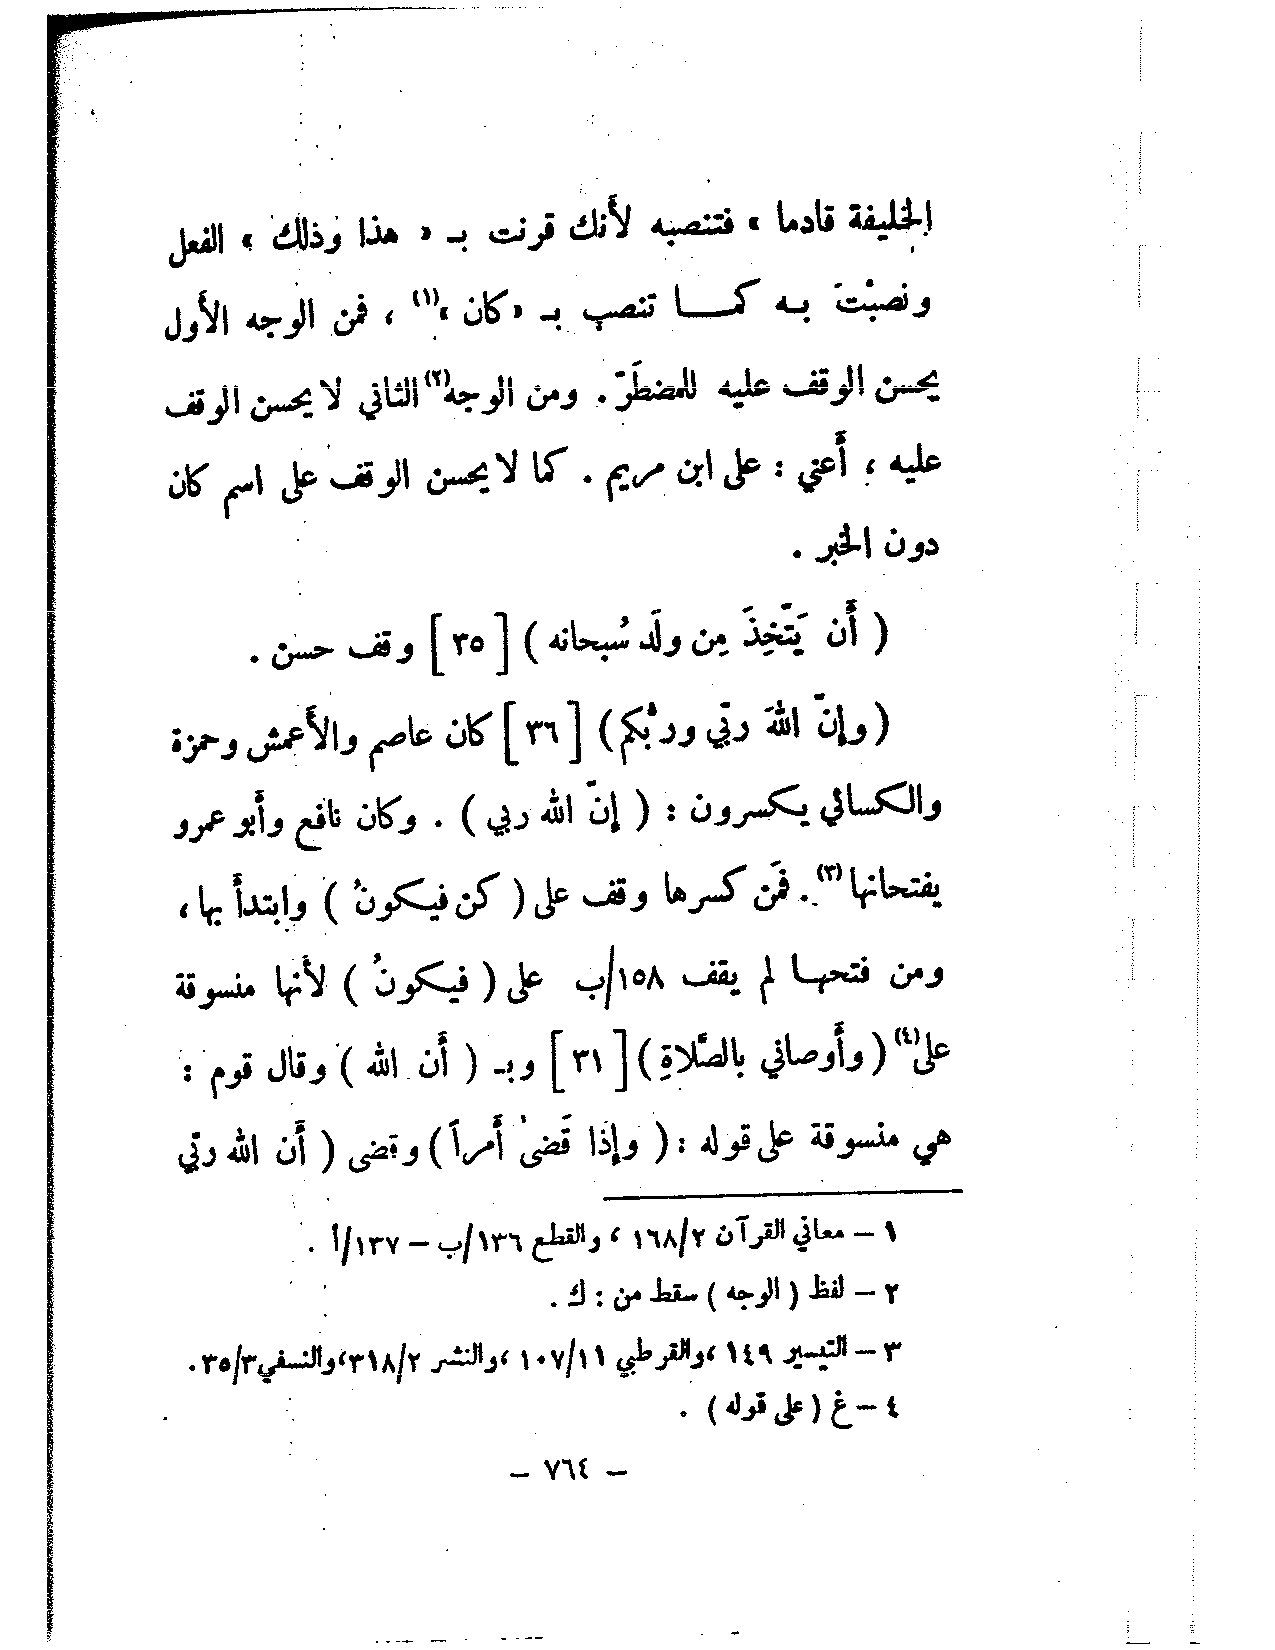 الخليفة قادما » فتنصبه لأنك قرنت بـ « هذا وذلك » الفعل
ونصبْتَ بـه كمـــا تنصب بـ «كان »(١) ، فمن الوجه الأول
يحسن الوقف عليه للمضطَرّ . ومن الوجه(٢) الثاني لا يحسن الوقف
عليه ، أعني : على ابن مريم . كما لا يحسن الوقف على اسم كان
دون الخبر .
( أَن يَتّخِذَ مِن ولَد سُبحانه ) [ ٣٥ ] وقف حسن .
( وإنّ اللهَ ربّي وربُّكم ) [ ٣٦ ] كان عاصم والأعمش وحمزة
والكسائي يكسرون : ( إنّ الله ربي ) . وكان نافع وأبو عمرو
يفتحانها(٣) . فمَن كسرها وقف على ( كن فيكونُ ) وابتدأ بها ،
ومن فتحهـا لم يقف ١٥٨/ب على ( فيكونُ ) لأنها منسوقة
على(٤) ( وأوصاني بالصَّلاةِ ) [ ٣١ ] وبـ ( أن الله ) وقال قوم :
هي منسوقة على قوله : ( وإذا قَضىٰ أمراً ) وقضى ( أن الله ربّي
١ – معاني القرآن ١٦٨/٢ ، والقطع ١٣٦/ب – ١٣٧/أ .
٢ – لفظ ( الوجه ) سقط من : ك .
٣ – التيسير ١٤٩ ،والقرطبي ١٠٧/١١ ،والنشر ٣١٨/٢ ،والنسفي ٣٥/٣ .
٤ – غ ( على قوله ) .
– ٧٦٤ –